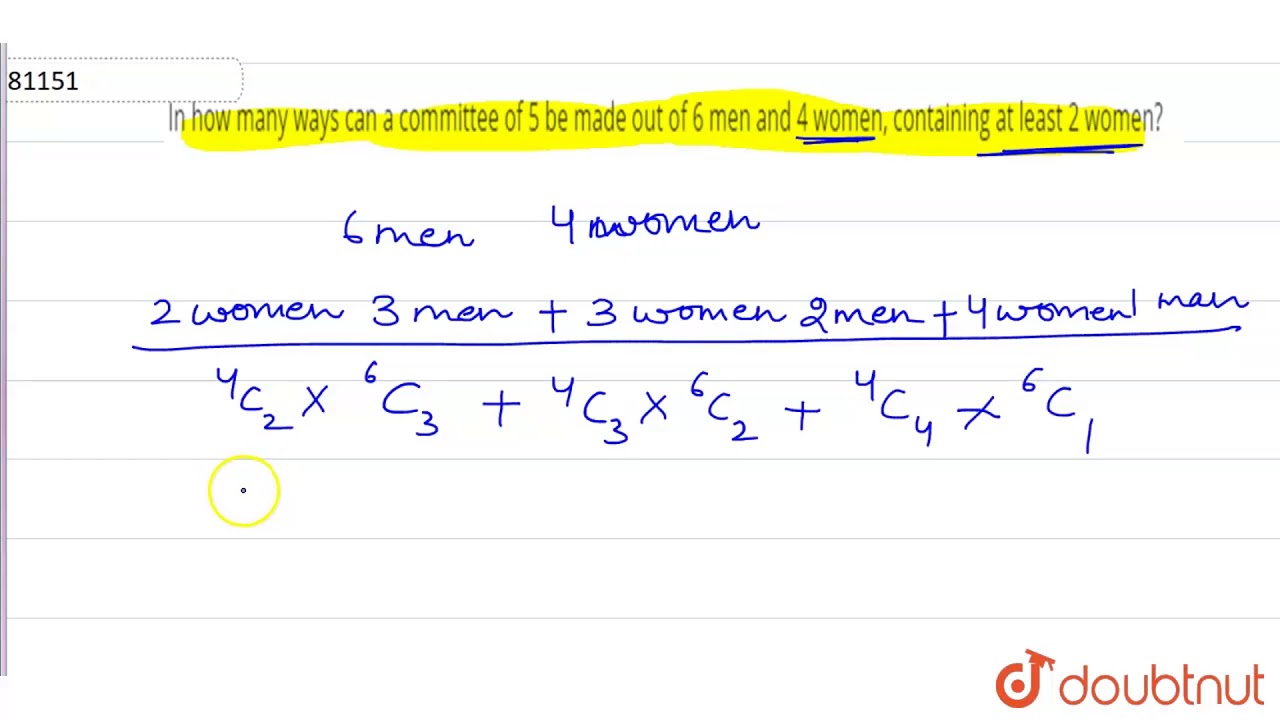 81151
In how many ways can a committee of 5 be made out of 6 men and 4 women, containing at least 2 women?
6 men 4 women
2 women 3 men + 3 women 2 men + 4 women 1 man
⁴C₂ × ⁶C₃ + ⁴C₃ × ⁶C₂ + ⁴C₄ × ⁶C₁
doubtnut